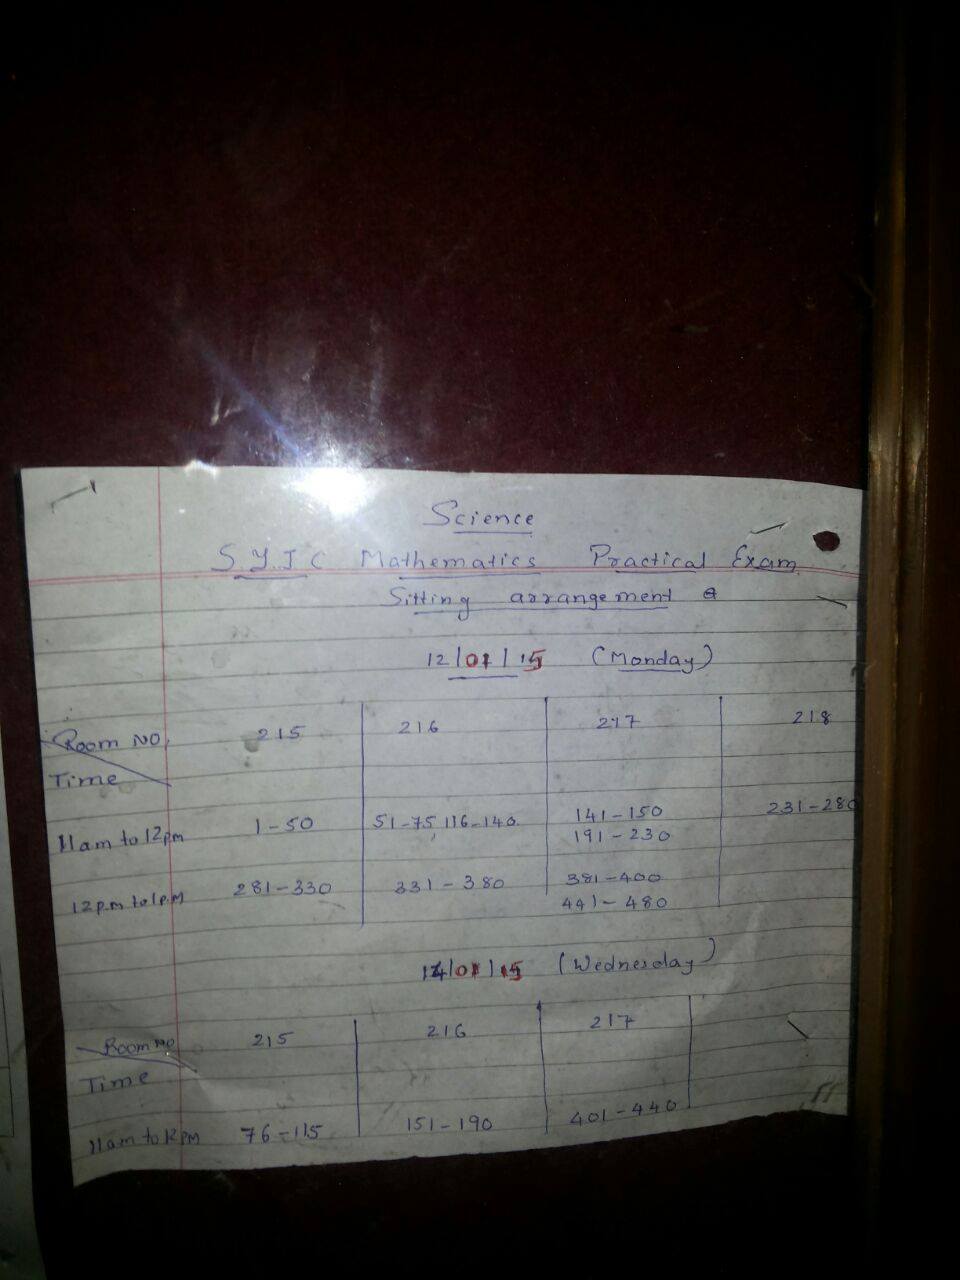 Science
S.Y.J.C Mathematics Practical Exam
Sitting arrangement
12/01/15 (Monday)
Room No. 215 216 217 218
Time
11am to 12pm 1-50 51-75, 116-140 141-150 231-280
191-230
12p.m to 1p.m 281-330 331-380 381-400
441-480
14/01/15 (Wednesday)
Room No 215 216 217
Time
11am to 12pm 76-115 151-190 401-440